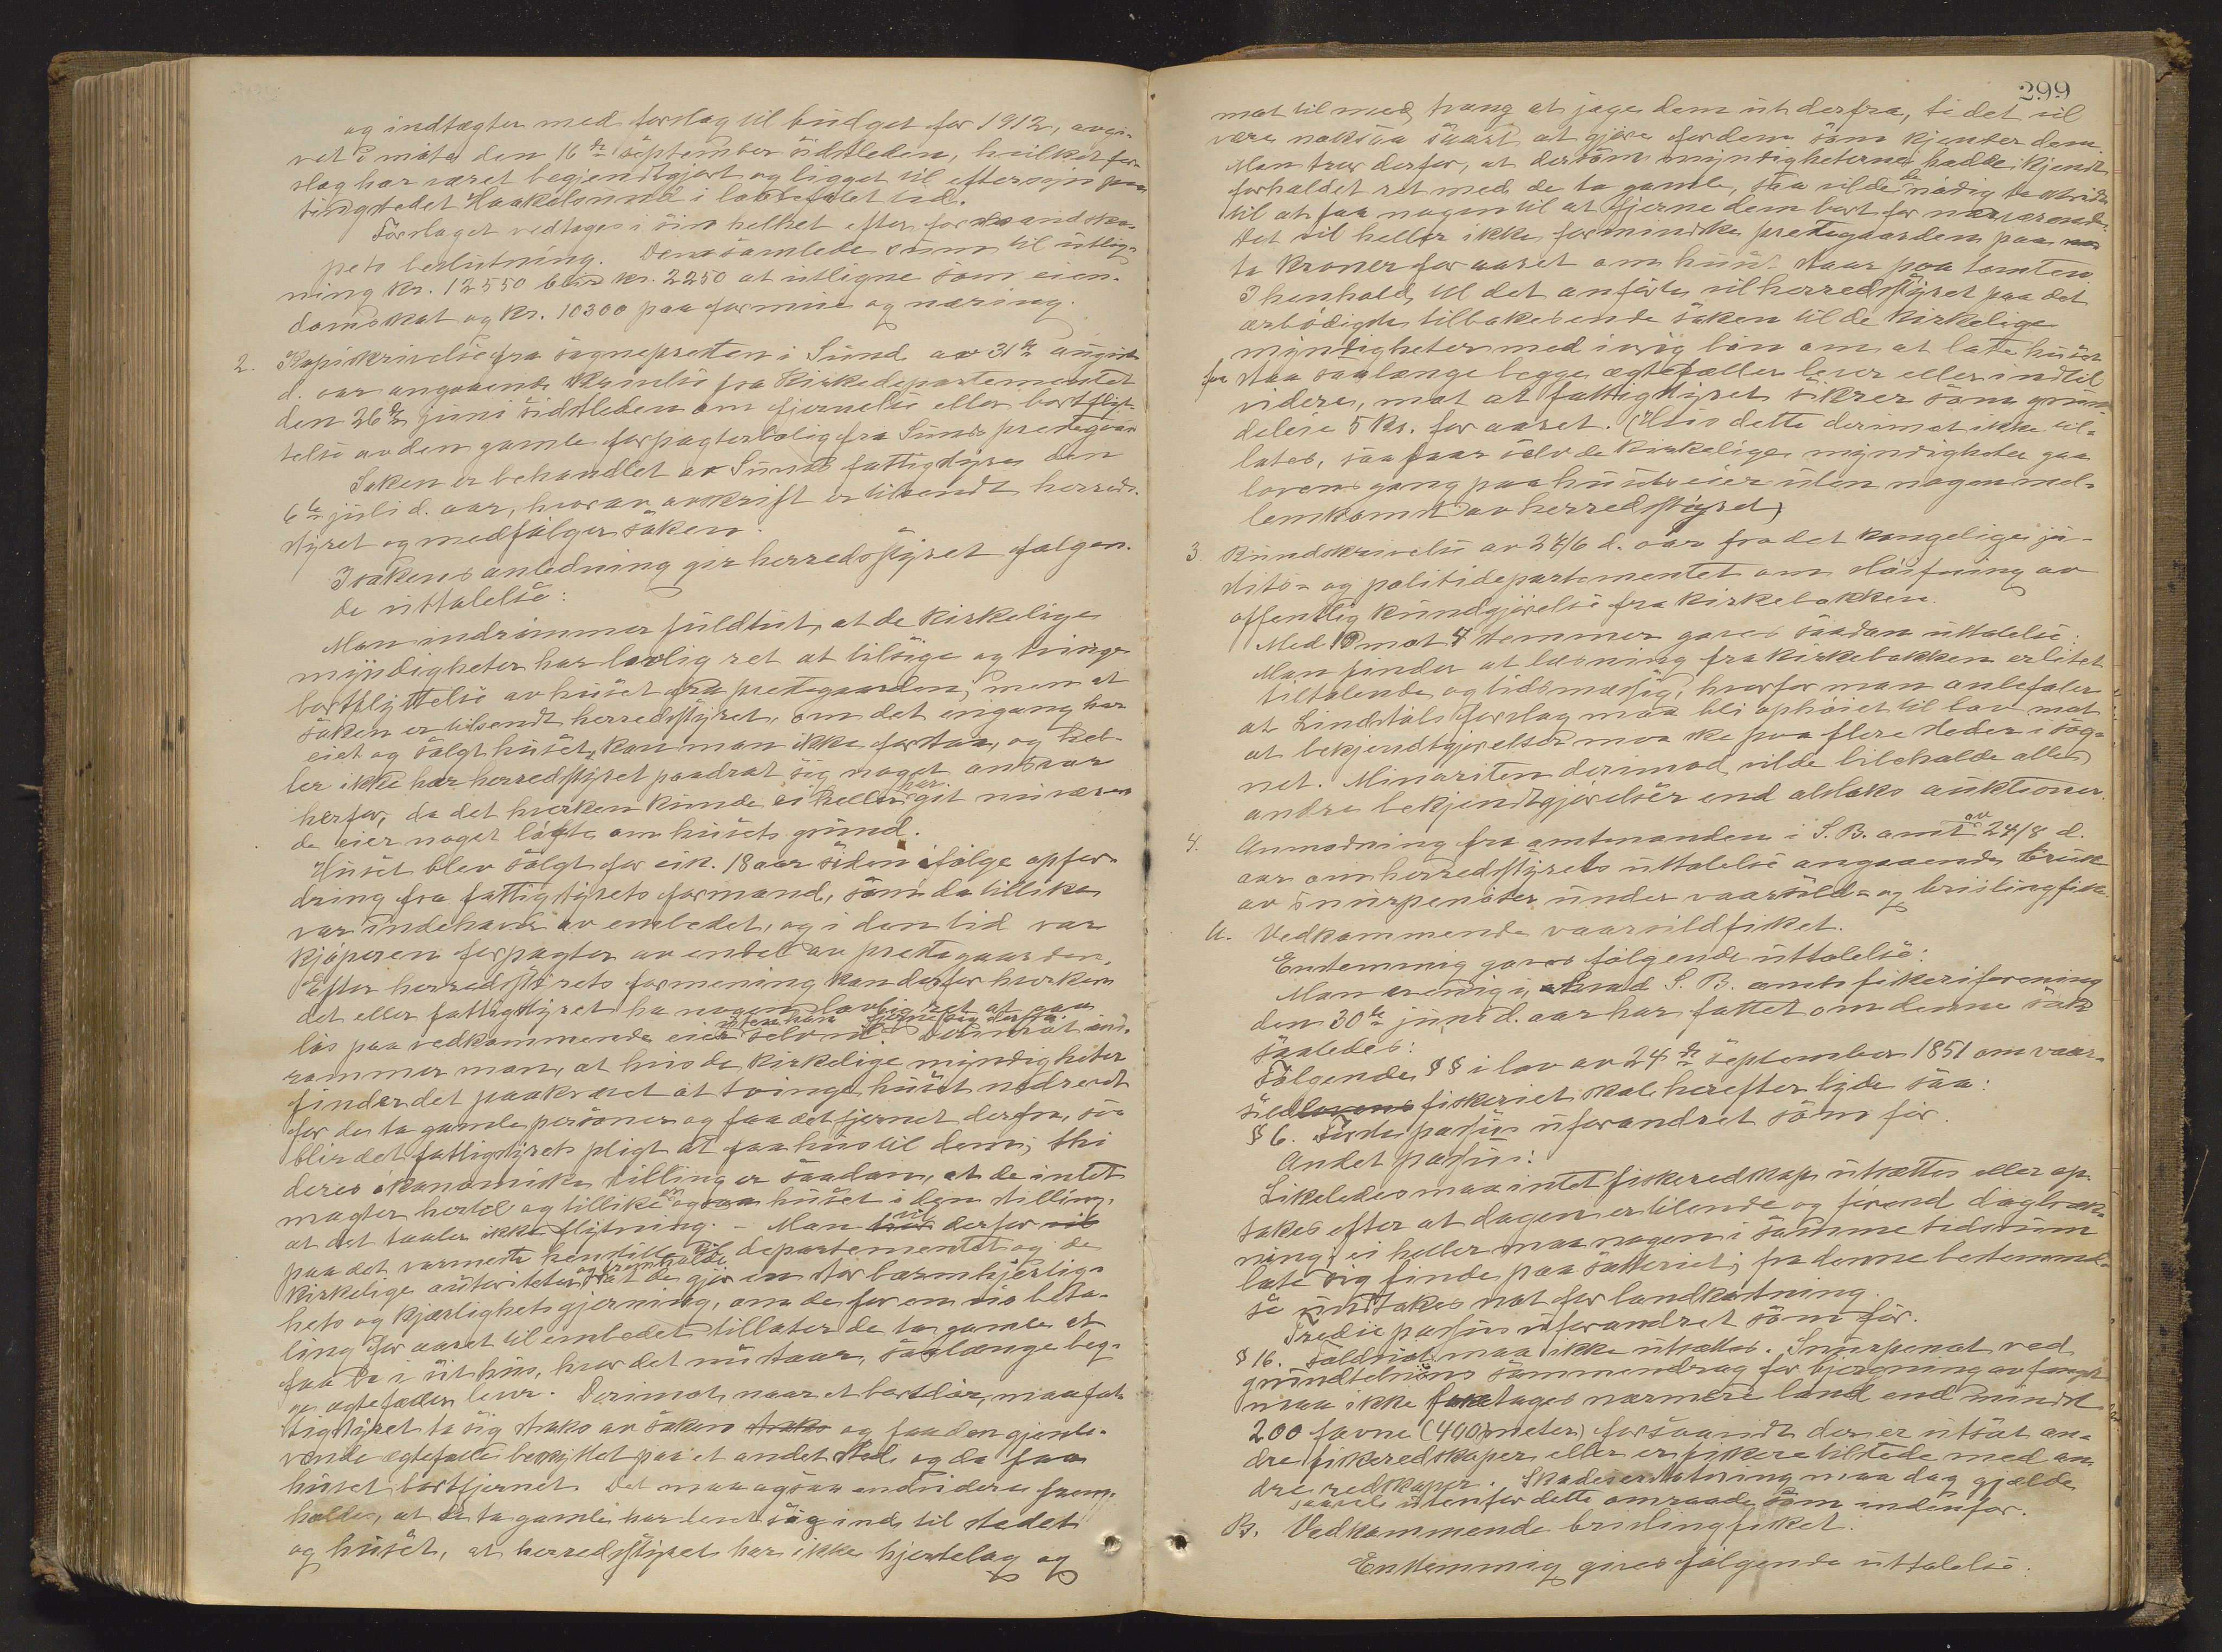 og indtægter med forslag til budget for 1912, avgi-
vet i møte den 16de september sidstleden, hvilket for-
slag har været bekjendtgjort og ligget til eftersyn paa
tingstedet Haakelsund i lovbefalet tid.
Forslaget vedtages i sin helhet efter formandska-
pets beslutning. Den samlede sum til utlig-
ning kr. 12550 blir kr. 2250 at utligne som eien-
domsskat og kr. 10300 paa formue og næring.
2. Kopiskrivelse fra sognepresten i Sund av 31te august
d. aar angaaende skrivelse fra Kirkedepartementet
den 26de juni sidstleden om fjernelse eller bortflyt-
telse av den gamle forpagterbolig fra Sunds prestegaar
Saken er behandlet av Sunds fattigstyre den
6te juli d. aar, hvorav avskrift er tilsendt herreds-
styret og medfølger saken.
I sakens anledning gir herredsstyret følgen-
de uttalelse:
Man indrømmer fuldtut, at de kirkelige
myndigheter har lovlig ret at tilsige og tvinge
bortflyttelse av huset fra prestegaarden; men at
saken er tilsendt herredsstyret, om det engang har
eiet og solgt huset, kan man ikke forstaa, og hel-
ler ikke har herredsstyret paadrat sig noget ansvar
herfor, da det hverken kunde ei heller har git nuværen
de eier noget løfte om husets grund.
Huset blev solgt for cirk. 18 aar siden ifølge opfor-
dring fra fattigstyrets formand, som da tillike
var indehaver av embedet, og i den tid var
kjøperen forpagter av endel av prestegaarden.
Efter herredsstyrets formening kan derfor hverken
det eller fattigstyret ha nogen lovlig ret at gaa
løs paa vedkommende eier uten han selv vil fjerne sig derfra. Derimot ind-
rømmer man, at hvis de kirkelige myndigheter
finder det paakrævet at tvinge huset nedrevet
for de to gamle personer og faa det fjernet derfra, saa
blir det fattigstyrets pligt at faa hus til dem; thi
deres økonomiske stilling er saadan, at de intet
magter hertil og tillike er ogsaa huset i den stilling,
at det taaler ikke flytning. – Man tror vil derfor vil
paa det varmeste henstille til departementet og de
kirkelige autoriteter og fremholde at de gjør en stor barmhjertig-
hets og kjærlighetsgjerning, om de for en vis beta-
ling for aaret til embedet tillater de to gamle at
faa bo i sit hus, hvor det nu staar, saalænge beg-
ge ægtefæller lever. Derimot, naar et bortdør, maa fat-
tigstyret ta sig straks av saken straks og faa den gjenle-
vende ægtefælle beskyttet paa et andet sted og da faa
huset bortfjernet. Det maa ogsaa endvidere frem-
holdes, at de to gamle har levet sig ind til stedet
og huset, at herredsstyret har ikke hjertelag og
299
mot til med tvang at jage dem ut derfra, ti det vil
være noksaa saart at gjøre for dem som kjender dem.
Man tror derfor, at dersom myndigheterne hadde kjendt
forholdet ret med de to gamle, saa vilde de nødig ta skridt
til at faa nogen til at fjerne dem bort for nærværende.
Det vil heller ikke forminske prestegaarden paa no
to kroner for aaret om huset staar paa tomten
I henhold til det anførte vil herredsstyret paa det
ærbødigste tilbakesende saken til de kirkelige
myndigheter med ivrig bøn om at late huset
faa staa saalænge begge ægtefæller lever eller indtil
videre, mot at fattigstyret sikrer som grund-
deleie 5 kr. for aaret. (Hvis dette derimot ikke til-
lates, saa faar selv de kirkelige myndigheter gaa
lovens gang paa husets eier uten nogen mel-
lemkomst av herredsstyret)
3. Rundskrivelse av 28/6 d. aar fra det kongelige ju-
stits- og politidepartementet om sløifning av
offentlig kundgjørelse fra kirkebakken.
Med 12 mot 4 stemmer gaves saadan uttalelse:
Man finder at læsning fra kirkebakken er litet
tiltalende og tidsmæssig, hvorfor man anbefaler
at Lindstøls forslag maa bli ophøiet til lov mot
at bekjendtgjørelser maa ske paa flere steder i sog-
net. Minoriten derimod vilde bibeholde alle
andre bekjendtgjørelser end utlæks auktioner.
4. Anmodning fra amtmanden i S. B. amt av 24/8 d.
aar om herredsstyrets uttalelse angaaende bruk
av snurpenøter under vaarsild- og brislingfiske.
A. Vedkommende vaarsildfisket.
Enstemmig gaves følgende uttalelse:
Man er enig i, hvad S. B. amts fiskeriforening
den 30te juni d. aar har fattet om denne sak
saaledes:
Følgende §§ i lov av 24de september 1851 om vaar-
sildlovens fiskeriet skal herefter lyde saa:
§ 6. Første passus uforandret som før.
Andet passus:
Likeledes maa intet fiskeredskap utsættes eller op-
takes efter at dagen er tilende og førend dagbræk-
ning, ei heller maa nogen i samme tidsrum
late sig finde paa sætteriet; fra denne bestemmel-
se undtakes not for landkastning.
Tredie passus uforandret som før.
§ 16. Føldnot maa ikke utsættes. Snurpenot ved
grundtelnens sammendrag for bjergning av fangst
maa ikke foretages nærmere land end mindst
200 favne (400 meter) forsaavidt der er utsat an-
dre fiskeredskaper eller er fiskere tilstede med an-
dre redskaper. Skadeserstatning maa dog gjælde
saavel utenfor dette omraade som indenfor.
B. Vedkommende brislingfisket.
Enstemmig gives følgende uttalelse: